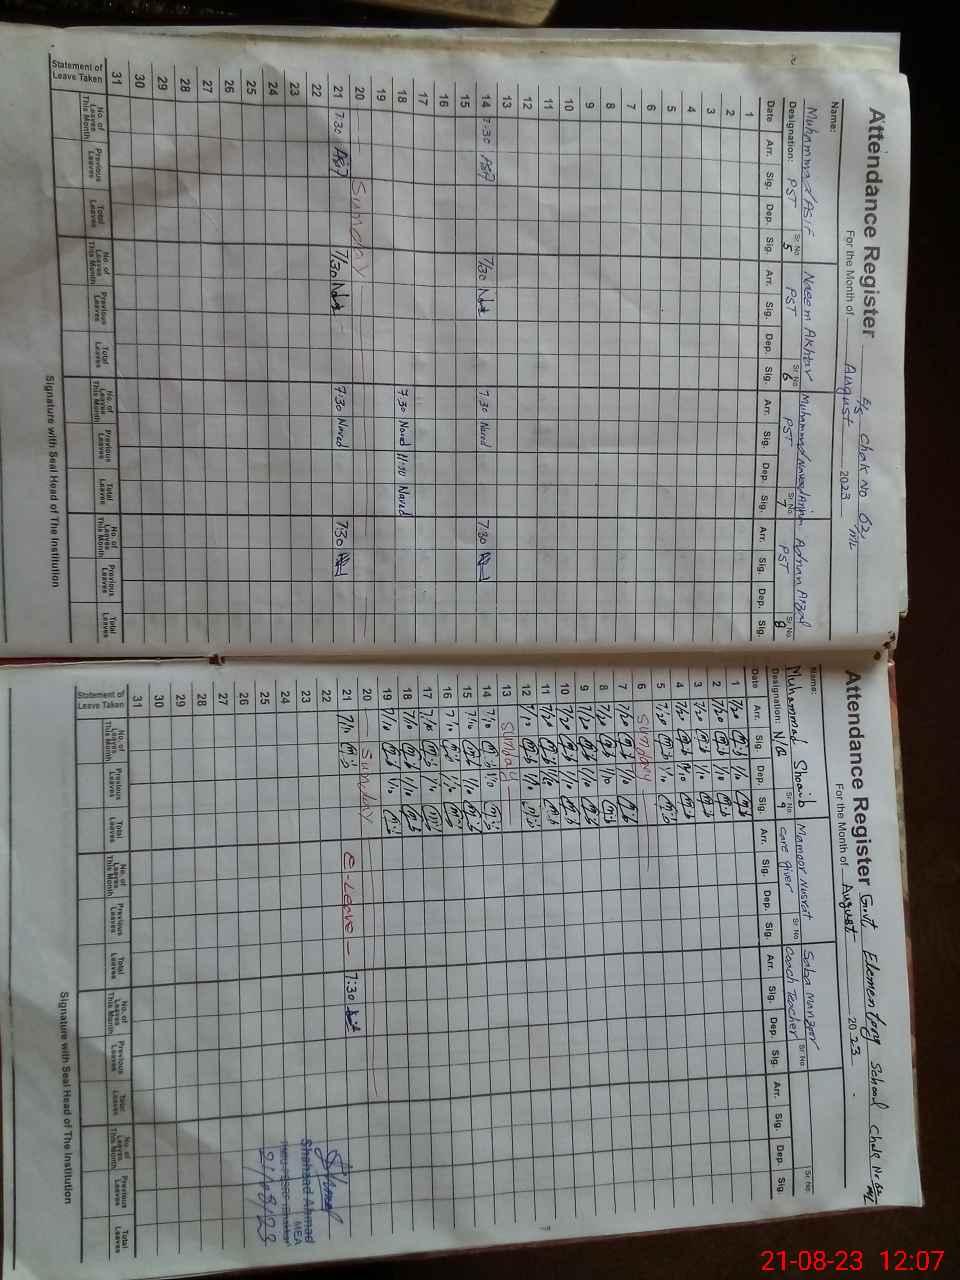 Attendance Register E/S Chak No 62/ML
For the Month of August 2023
Name: Muhammad Asif Naeem Akhtar Muhammad Naved Anjum Adnan Afzal
Designation: PST Sr. No. 5 PST Sr. No. 6 PST Sr. No. 7 PST Sr. No. 8
Date Arr. Sig. Dep. Sig. Arr. Sig. Dep. Sig. Arr. Sig. Dep. Sig. Arr. Sig. Dep. Sig.
1
2
3
4
5
6
7
8
9
10
11
12
13
14 7:30 Asif 7/30 7:30 Naved 7:30
15
16
17
18 7:30 Naved 11:30 Naved
19
20 Sunday
21 7:30 Asif 7/30 7:30 Naved 7:30
22
23
24
25
26
27
28
29
30
31
Statement of Leave Taken No. of Leaves This Month Previous Leaves Total Leaves No. of Leaves This Month Previous Leaves Total Leaves No. of Leaves This Month Previous Leaves Total Leaves No. of Leaves This Month Previous Leaves Total Leaves
Signature with Seal Head of The Institution
Attendance Register Govt Elementary School Chak No 62/ML
For the Month of August 2023
Name: Muhammad Shoaib Mamoor Nusrat Saba Manzoor
Designation: N/Q Sr. No. 9 Care giver Sr. No. Coach Teacher Sr. No. Sr. No.
Date Arr. Sig. Dep. Sig. Arr. Sig. Dep. Sig. Arr. Sig. Dep. Sig. Arr. Sig. Dep. Sig.
1 7/20 1/10
2 7/20 1/10
3 7/20 1/10
4 7/20
5 7/20 1/10
6 Sunday
7 7/20 1/10
8 7/20 1/10
9 7/20 1/10
10 7/20 1/10
11 7/20 1/10
12 7/10 1/10
13 Sunday
14 7/10 1/10
15 7/10 1/10
16 7/10 1/10
17 7/10 1/10
18 7/10 1/10
19 7/10 1/10
20 Sunday
21 7/10 C-Leave 7:30
22
23
24
25
26
27
28
29
30
31
Shahzad Ahmad
MEA
21/08/23
Statement of Leave Taken No. of Leaves This Month Previous Leaves Total Leaves No. of Leaves This Month Previous Leaves Total Leaves No. of Leaves This Month Previous Leaves Total Leaves No. of Leaves This Month Previous Leaves Total Leaves
Signature with Seal Head of The Institution
21-08-23 12:07